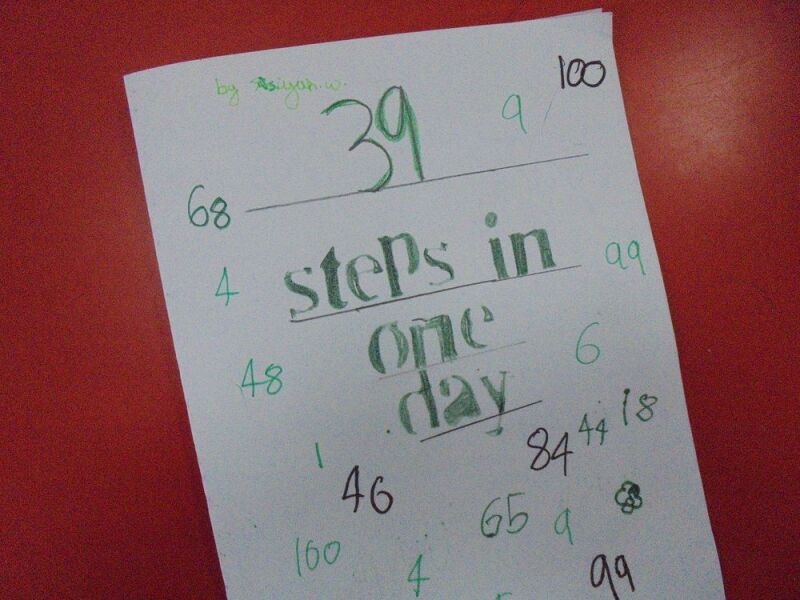 100
by Asiyah.w.
39
9
68
steps in
4
99
one
48
6
day
18
44
1
84
46
65
9
100
4
99